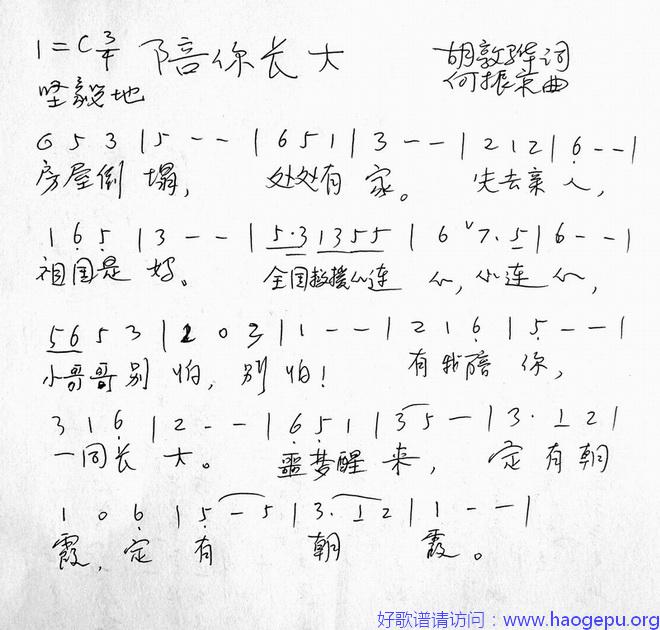 1=C 3/4 陪你长大 胡敦骅词
坚毅地 何振京曲
6 5 3 | 5 - - | 6 5 1 | 3 - - | 2 1 2 | 6̣ - - |
房屋倒塌, 处处有家。 失去亲人,
1 6̣ 5̣ | 3 - - | 5·3 1355 | 6 ᵛ7·5 | 6 - - |
祖国是妈。 全国救援心连心,心连心,
56 5 3 | 2 0 3 | 1 - - | 2 1 6̣ | 5̣ - - |
小哥哥别怕,别怕! 有我陪你,
3 1 6̣ | 2 - - | 6̣ 5̣ 1 | 3 5 - | 3· 1 2 |
一同长大。 噩梦醒来, 定有朝
1 0 6̣ | 5̣ - 5 | 3· 1 2 | 1 - - |
霞,定有朝霞。
好歌谱请访问:www.haogepu.org